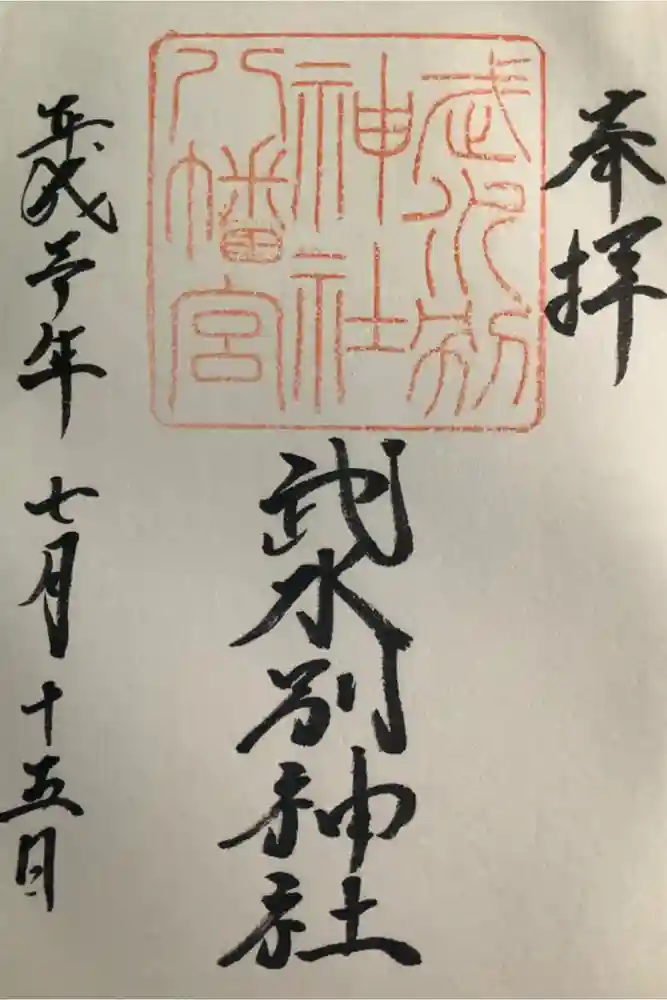 奉拝
武水別
神社
八幡宮
武水別神社
平成年七月十五日